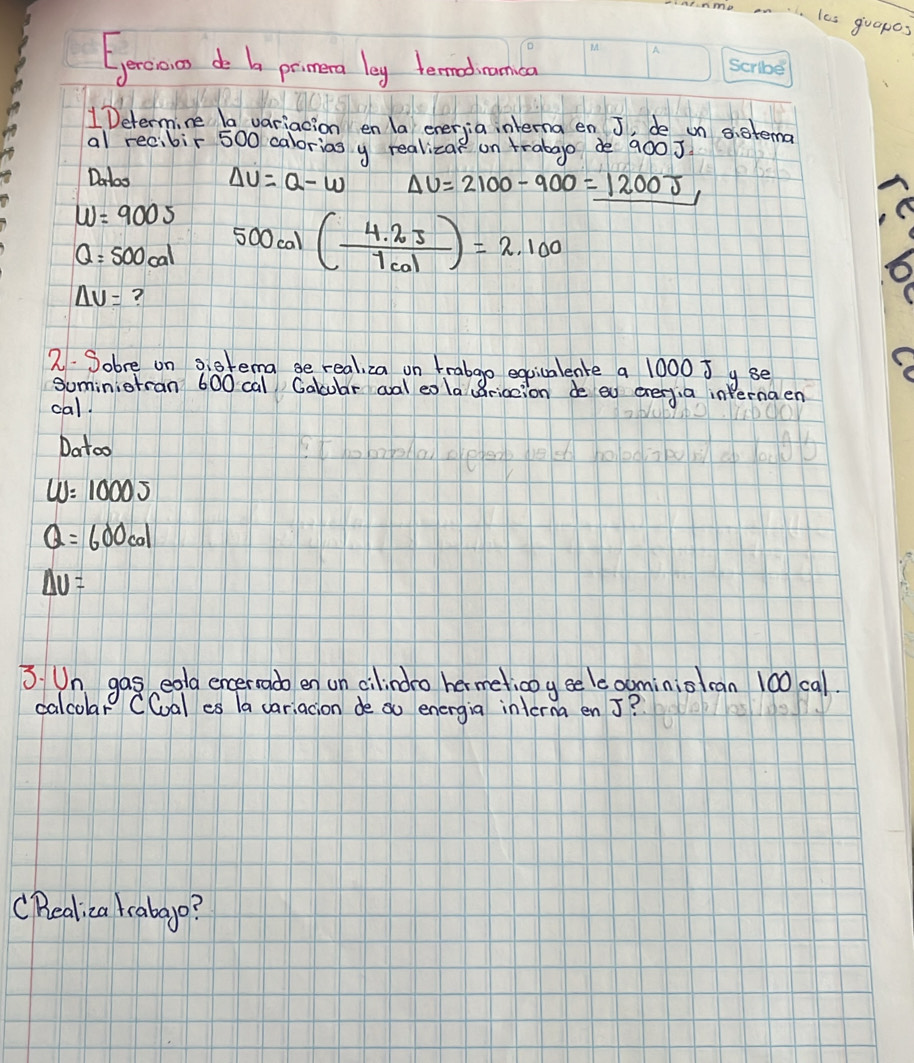 los guapos
D M A
Scribe
Ejercicios de la primera ley termodinamica
1 Determine la variacion en la energia interna en J, de un sistema
al recibir 500 calorias y realizar un trabajo de 900 J.
Datos ΔU = Q - W ΔU = 2100 - 900 = 1200 J
W = 900 J
Q = 500 cal 500 cal (4.2 J / 1 cal) = 2.100
ΔU = ?
2.- Sobre un sistema se realiza un trabajo equivalente a 1000 J y se
suministran 600 cal. Calcular cual es la variacion de su energia interna en
cal.
Datos
W = 1000 J
Q = 600 cal
ΔU =
3.- Un gas esta encerrado en un cilindro hermetico y se le suministran 100 cal.
calcular ¿Cual es la variacion de su energia interna en J?
¿Realiza trabajo?